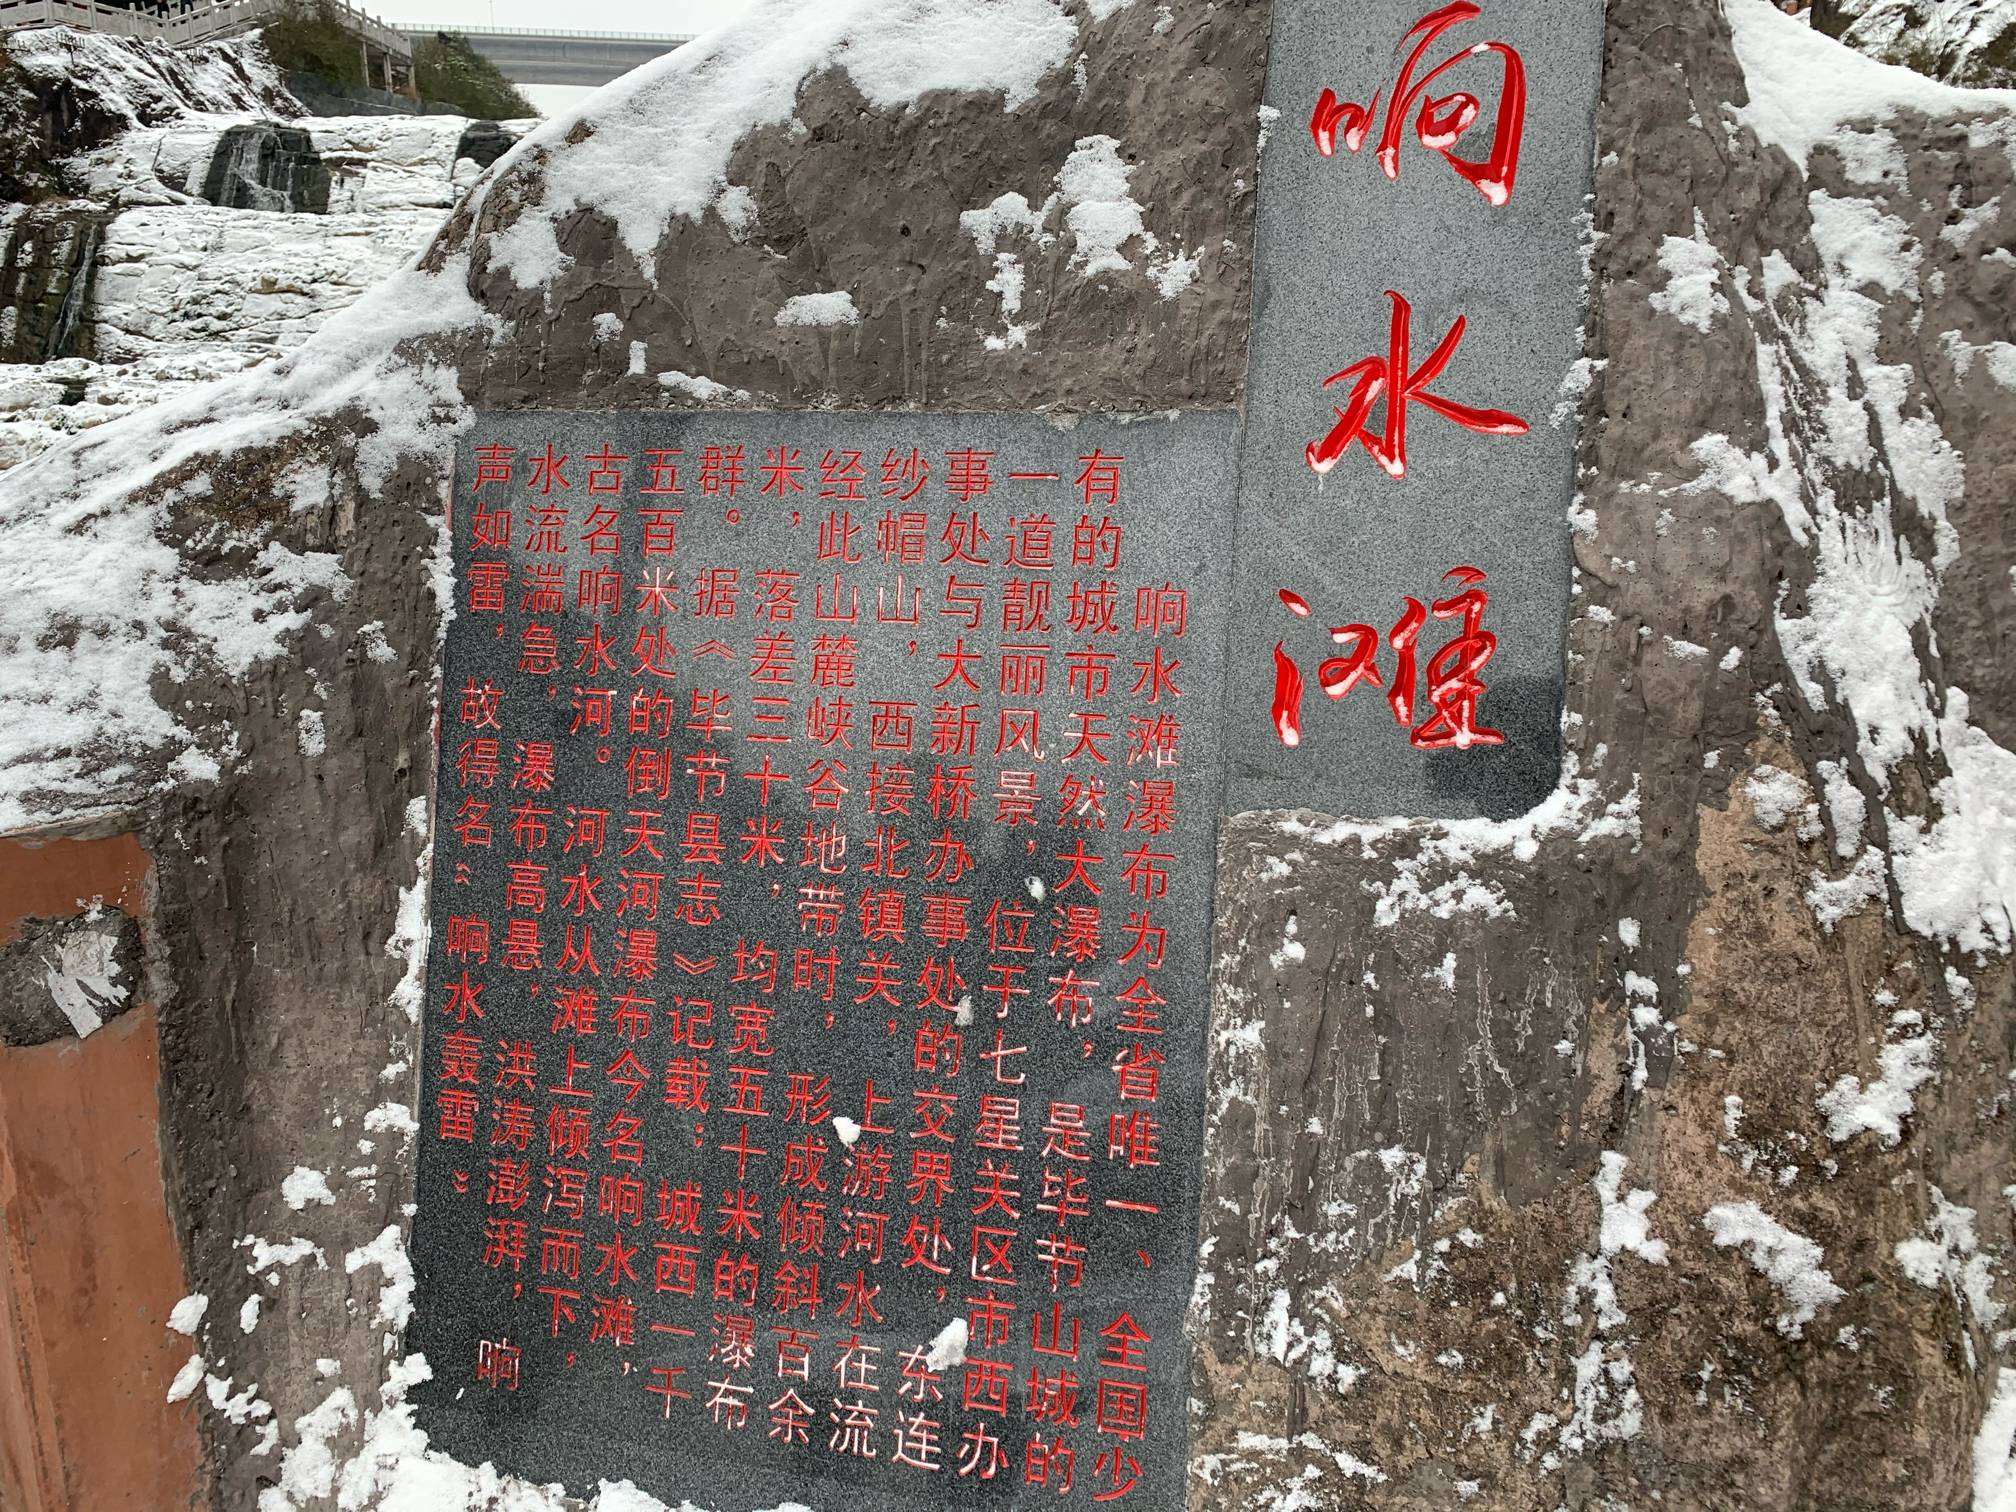 响水滩
响水滩瀑布为全省唯一、全国少
有的城市天然大瀑布，是毕节山城的
一道靓丽风景，位于七星关区市西办
事处与大新桥办事处的交界处，东连
纱帽山，西接北镇关，上游河水在流
经此山麓峡谷地带时，形成倾斜百余
米，落差三十米，均宽五十米的瀑布
群。据《毕节县志》记载：城西一千
五百米处的倒天河瀑布今名响水滩，
古名响水河。河水从滩上倾泻而下，
水流湍急，瀑布高悬，洪涛澎湃，响
声如雷，故得名“响水轰雷”